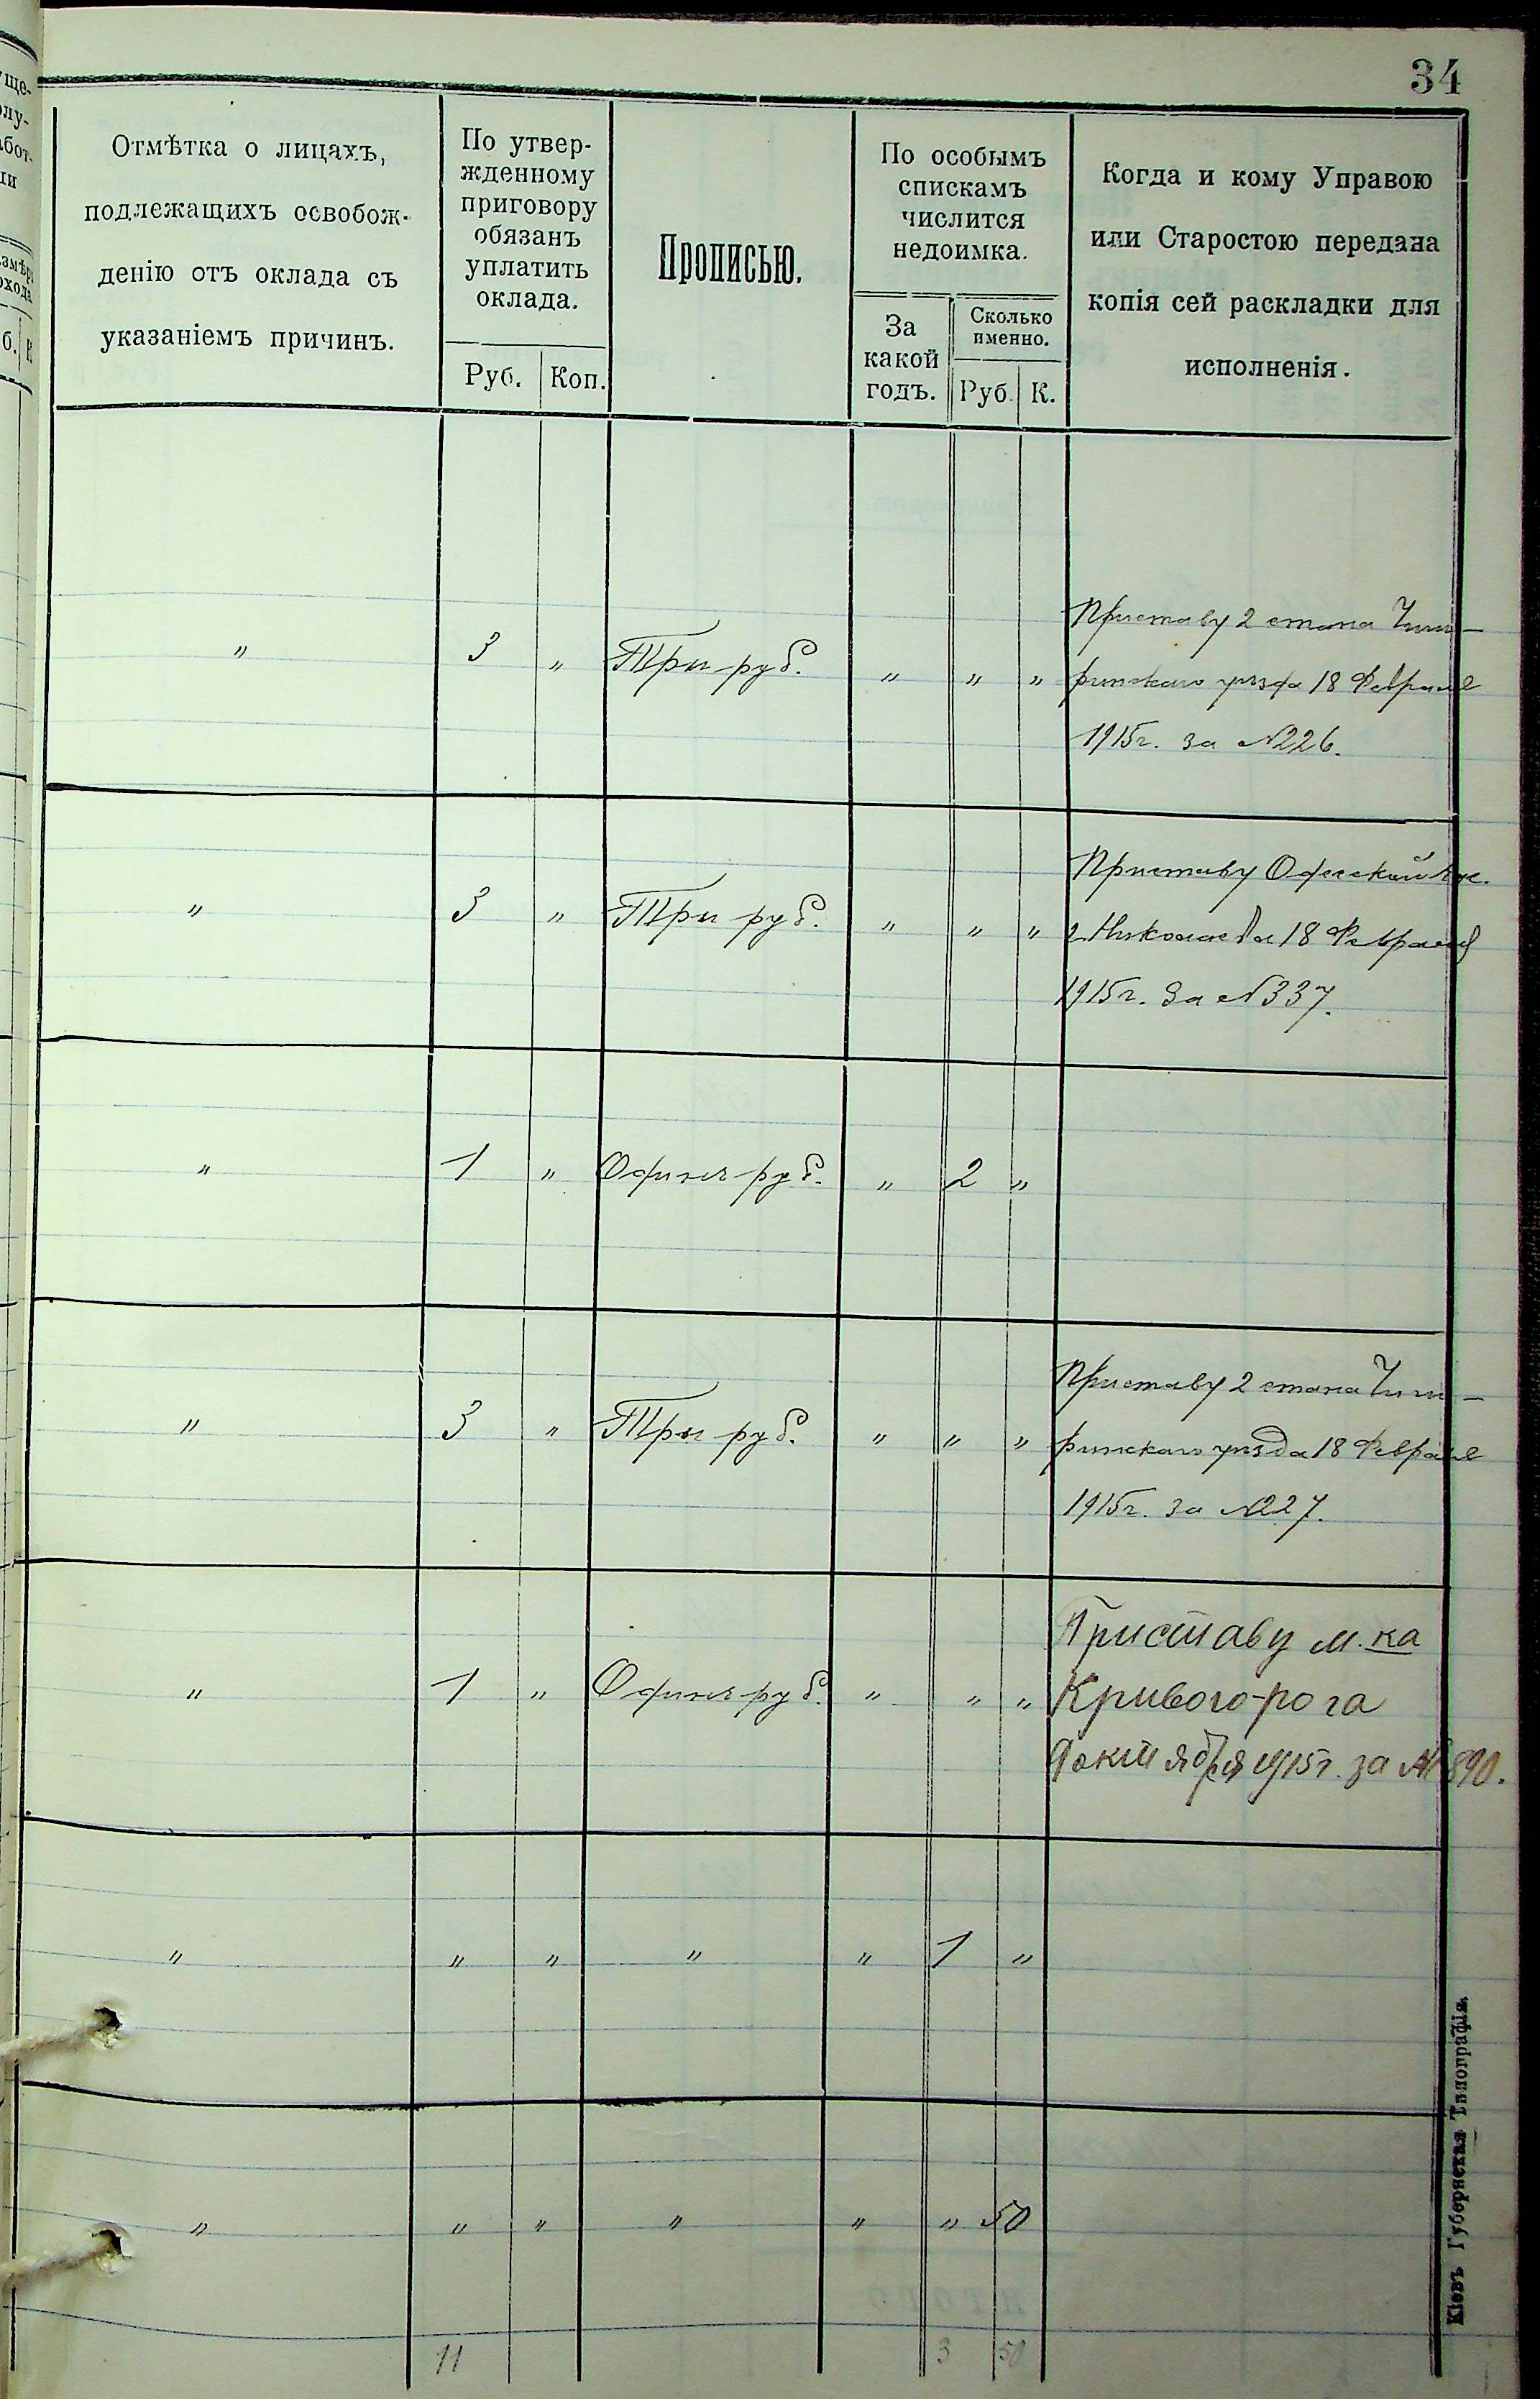 34
Отмѣтка о лицахъ,
подлежащихъ освобож-
денію отъ оклада съ
указаніемъ причинъ.
По утвер-
жденному
приговору
обязанъ
уплатить
оклада.
Руб. Коп.
Прописью.
По особымъ
спискамъ
числится
недоимка.
За
какой
годъ.
Сколько
именно.
Руб. К.
Когда и кому Управою
или Старостою передана
копія сей раскладки для
исполненія.
" 3 " Три руб. " " "
Приставу 2 стана Чиги-
ринскаго уѣзда 18 Февраля
1915г. за №226.
" 3 " Три руб. " " "
Приставу Одесской
г. Николаева 18 Февраля
1915г. За №337.
" 1 " Одинъ руб. " 2 "
" 3 " Три руб. " " "
Приставу 2 стана Чиги-
ринскаго уѣзда 18 Февраля
1915г. за №227.
" 1 " Одинъ руб. " " "
Приставу м.ка
Кривого-рога
9 октября 1915г. за № 890.
" " " " " 1 "
" " " " " " 50
11 3 50
Кіевъ Губернская Типографія.
уще-
олу-
абот-
ли
б. К